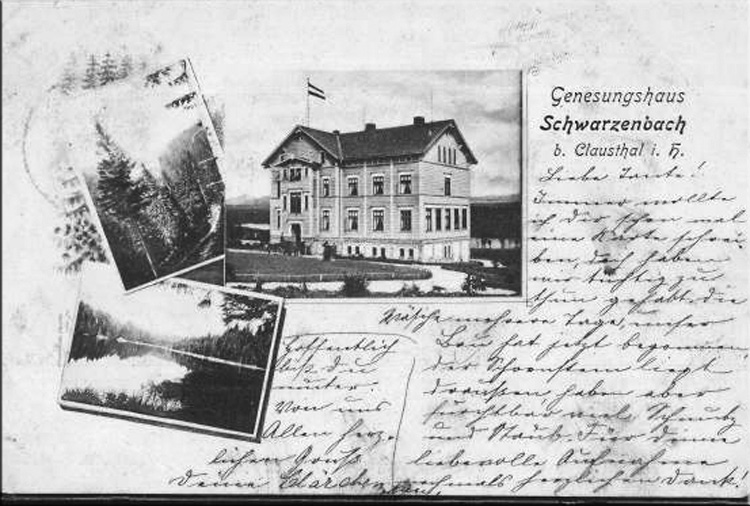 Genesungshaus
Schwarzenbach
b. Clausthal i. H.
Liebe Tante!
Immer wollte
ich Dir schon mal
eine Karte schrei
ben, doch haben
wir tüchtig zu
thun gehabt, die
Wäsche mehrere Tage, unser
Bau hat jetzt begonnen
der Schornstein liegt
draußen, haben aber
furchtbar viel Schmutz
und Staub. Für Deine
liebevolle Aufnahme
nochmals herzlichen Dank!
Hoffentlich
bist Du
munter.
Von uns
Allen herz-
lichen Gruß
Deine Clärchen